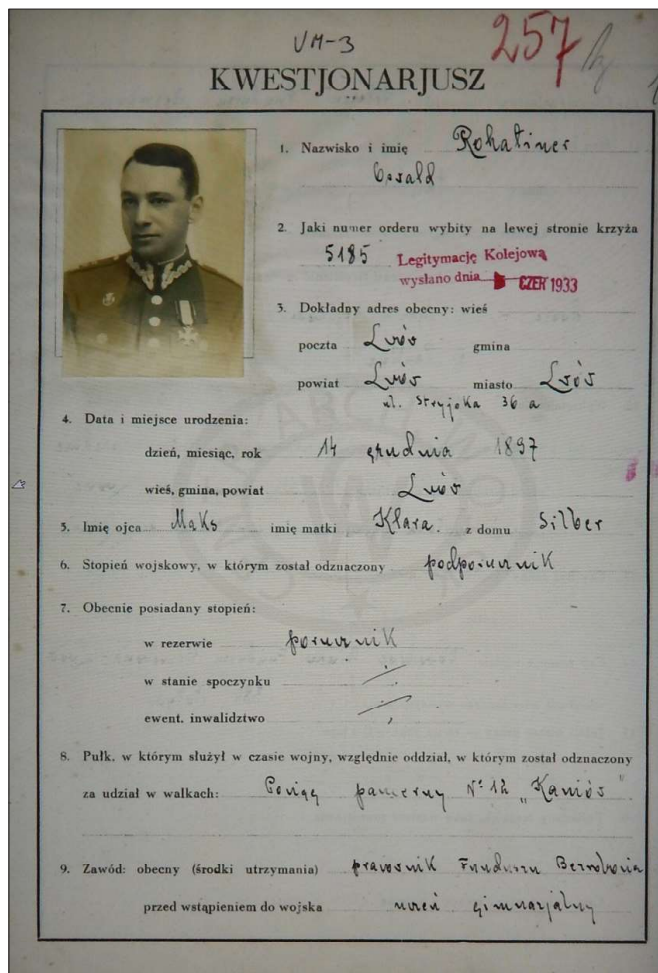 VM-3
257
KWESTJONARJUSZ
1. Nazwisko i imię Rohatiner
Oswald
2. Jaki numer orderu wybity na lewej stronie krzyża
5185
Legitymację Kolejową
wysłano dnia CZER 1933
3. Dokładny adres obecny: wieś
poczta Lwów gmina
powiat Lwów miasto Lwów
ul. Stryjska 36 a
4. Data i miejsce urodzenia:
dzień, miesiąc, rok 14 grudnia 1897
wieś, gmina, powiat Lwów
5. Imię ojca Maks imię matki Klara z domu Silber
6. Stopień wojskowy, w którym został odznaczony podporucznik
7. Obecnie posiadany stopień:
w rezerwie porucznik
w stanie spoczynku
ewent. inwalidztwo
8. Pułk, w którym służył w czasie wojny, względnie oddział, w którym został odznaczony
za udział w walkach: Pociąg pancerny Nº 12 „Kaniów"
9. Zawód: obecny (środki utrzymania) pracownik Funduszu Bezrobocia
przed wstąpieniem do wojska uczeń gimnazjalny